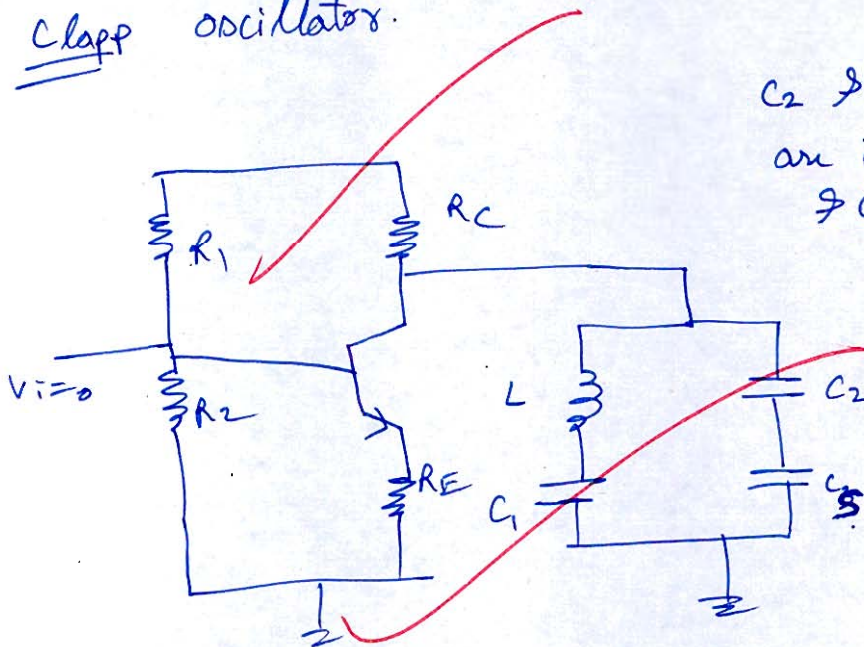 Clapp oscillator.
C2 &
are i
& C
R1
RC
Vi=0
R2
RE
L
C1
C2